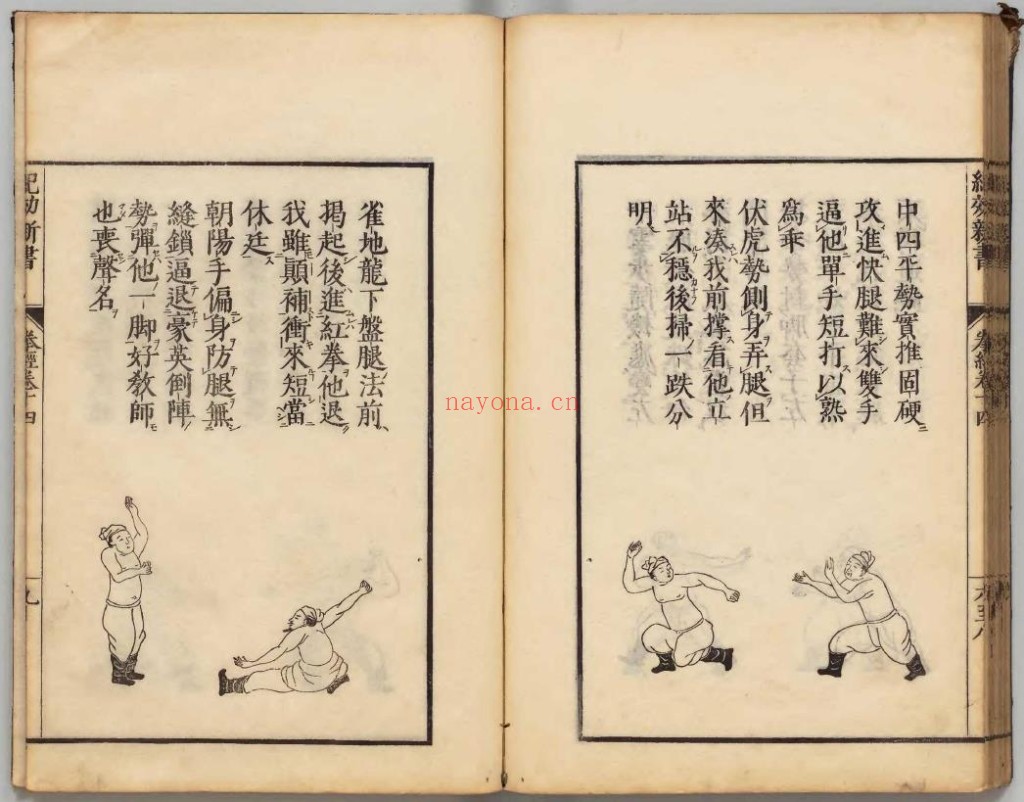 中四平勢實推固硬
攻進快腿難來雙手
逼他單手短打以熟
爲乖
伏虎勢側身弄腿但
來凑我前撑看他立
站不穩後掃一跌分
明
雀地龍下盤腿法前
揭起後進紅拳他退
我雖顛補衝來短當
休廷
朝陽手偏身防腿無
縫鎖逼退豪英倒陣
勢彈他一脚好敎師
也喪聲名
紀効新書
拳經卷十四
九
nayona.cn